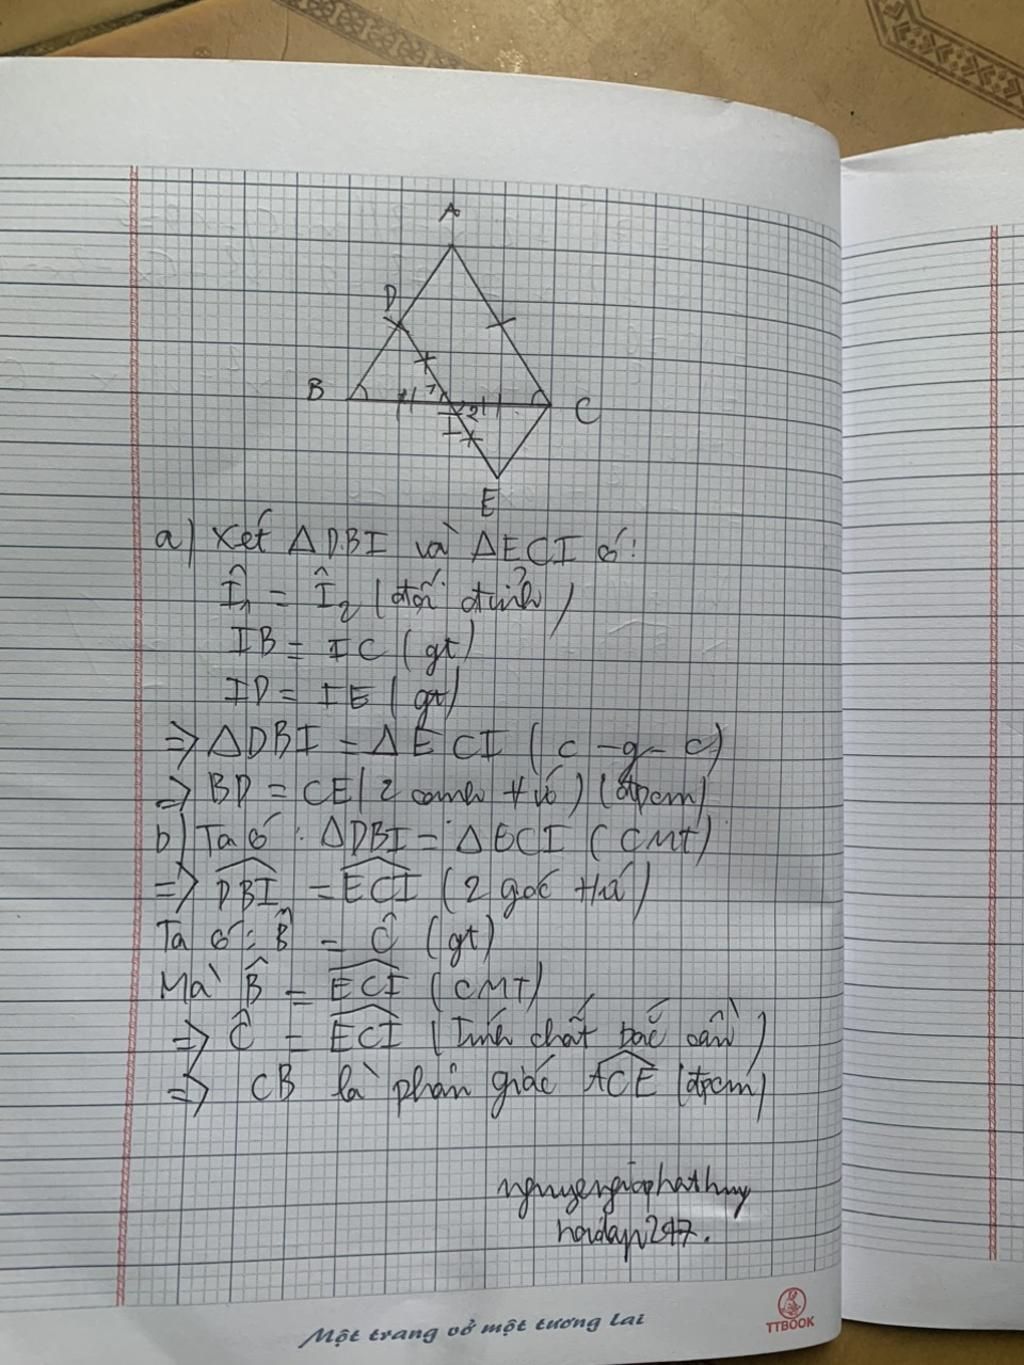 A
D
B
1
2
I
C
E
a) Xét ΔDBI và ΔECI có:
Î₁ = Î₂ (đối đỉnh)
IB = IC (gt)
ID = IE (gt)
=> ΔDBI = ΔECI (c-g-c)
=> BD = CE (2 cạnh t/ứ) (đpcm)
b) Ta có: ΔDBI = ΔECI (CMT)
=> \widehat{DBI} = \widehat{ECI} (2 góc t/ứ)
Ta có: B̂ = Ĉ (gt)
Mà B̂ = \widehat{ECI} (CMT)
=> Ĉ = \widehat{ECI} (Tính chất bắc cầu)
=> CB là phân giác \widehat{ACE} (đpcm)
nguyengiaphathuy
hoidap247.
Một trang vở một tương lai
TTBOOK